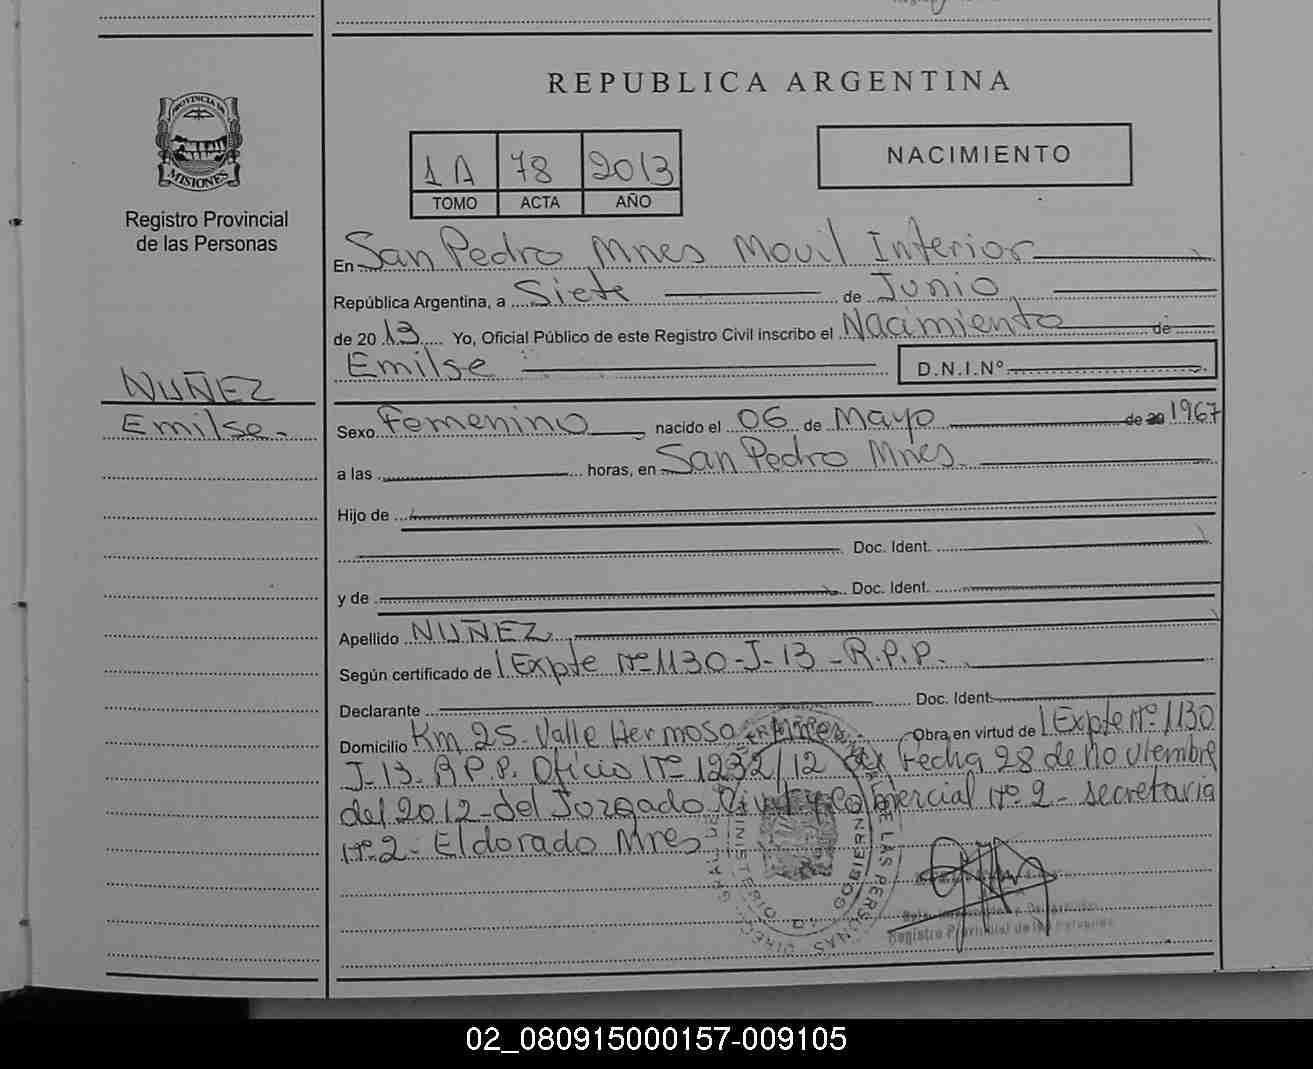 REPUBLICA ARGENTINA
PROVINCIA DE
MISIONES
Registro Provincial
de las Personas
1A 78 2013
TOMO ACTA AÑO
NACIMIENTO
En San Pedro Mnes Movil Interior
República Argentina, a Siete de Junio
de 2013 Yo, Oficial Público de este Registro Civil inscribo el Nacimiento de
Emilse D.N.I.Nº
NUÑEZ
Emilse.
Sexo Femenino nacido el 06 de Mayo de 20 1967
a las horas, en San Pedro Mnes.
Hijo de
Doc. Ident.
y de Doc. Ident.
Apellido NUÑEZ
Según certificado de Expte Nº 1130-J-13-R.P.P.
Declarante Doc. Ident.
Domicilio Km 25. Valle Hermoso Mnes Obra en virtud de Expte Nº 1130
J-13-R.P.P. Oficio Nº 1232/12 de Fecha 28 de noviembre
del 2012-del Juzgado Civil y Comercial Nº 2- secretaria
Nº 2- Eldorado Mnes
MINISTERIO DE GOBIERNO
DE LAS PERSONAS
Registro Provincial de las Personas
02_080915000157-009105